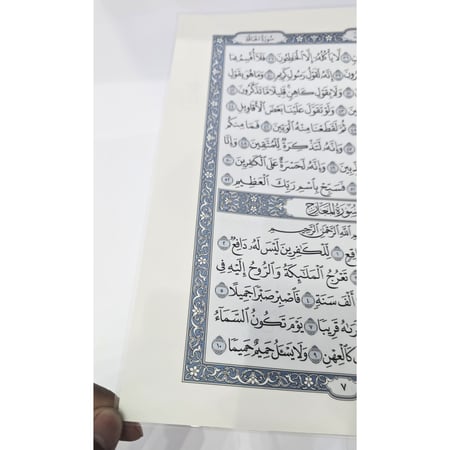 سُورَةُ الحَاقَّةِ
لَّا يَأْكُلُهُۥٓ إِلَّا ٱلْخَٰطِـُٔونَ ٣٧ فَلَآ أُقْسِمُ بِمَا
إِنَّهُۥ لَقَوْلُ رَسُولٍ كَرِيمٍ ٤٠ وَمَا هُوَ بِقَوْلِ
وَلَا بِقَوْلِ كَاهِنٍ قَلِيلًا مَّا تَذَكَّرُونَ ٤٢
وَلَوْ تَقَوَّلَ عَلَيْنَا بَعْضَ ٱلْأَقَاوِيلِ ٤٤
ثُمَّ لَقَطَعْنَا مِنْهُ ٱلْوَتِينَ ٤٦ فَمَا مِنكُم
وَإِنَّهُۥ لَتَذْكِرَةٌ لِّلْمُتَّقِينَ ٤٨ وَإِنَّا
وَإِنَّهُۥ لَحَسْرَةٌ عَلَى ٱلْكَٰفِرِينَ ٥٠
فَسَبِّحْ بِٱسْمِ رَبِّكَ ٱلْعَظِيمِ ٥٢
سُورَةُ المَعَارِجِ
ٱللَّهِ ٱلرَّحْمَٰنِ ٱلرَّحِيمِ
١ لِّلْكَٰفِرِينَ لَيْسَ لَهُۥ دَافِعٌ ٢
٣ تَعْرُجُ ٱلْمَلَٰٓئِكَةُ وَٱلرُّوحُ إِلَيْهِ فِى
أَلْفَ سَنَةٍ ٤ فَٱصْبِرْ صَبْرًا جَمِيلًا ٥
قَرِيبًا ٧ يَوْمَ تَكُونُ ٱلسَّمَآءُ
كَٱلْعِهْنِ ٩ وَلَا يَسْـَٔلُ حَمِيمٌ حَمِيمًا ١٠
٧